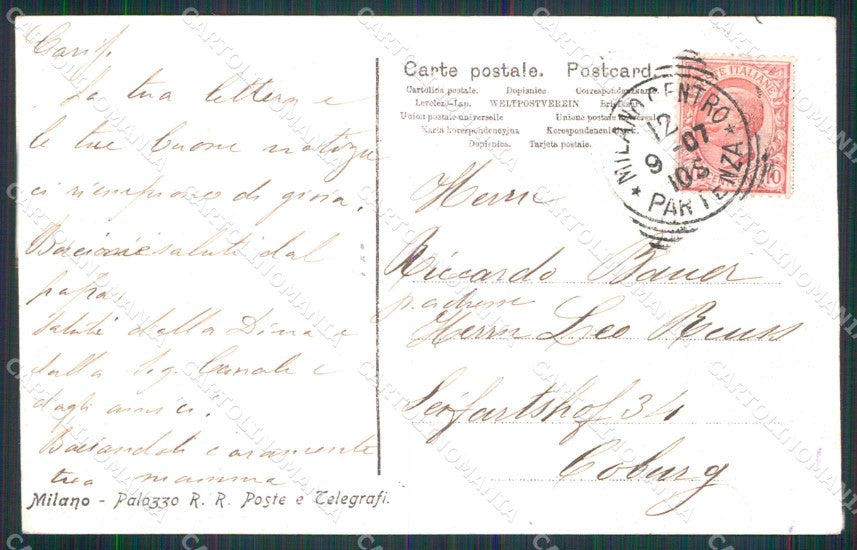 Cariss.
La tua lettera e
le tue buone notizie
ci riempirono di gioia.
Bacioni e saluti dal
papà
Saluti dalla Dina e
dalla Sig. Canali e
dagli amici.
Baciandoti caramente
tua mamma
Milano - Palazzo R. R. Poste e Telegrafi.
Carte postale. Postcard.
Cartolina postale. Dopisnice. Correspondenzkarte.
Levelez-Lap. WELTPOSTVEREIN
Union postale universelle Unione postale universale
Karta korespondencyjna Korespondenční
Dopisnica. Tarjeta postale.
MILANO CENTRO
12
07
9
10S
PARTENZA
10
Herrn
Riccardo Bauer
p. adresse
Herrn Leo Reuss
Seifartshof 34
Coburg
CARTOLINOMANIA